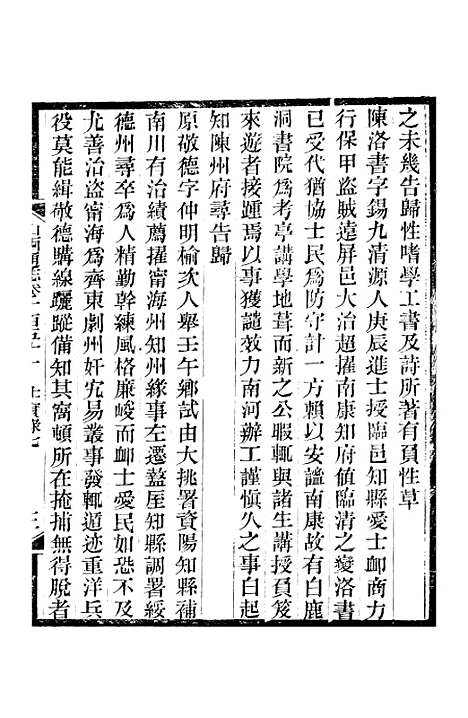 之未幾告歸性嗜學工書及詩所著有員性草
陳洛書字錫九清源人庚辰進士授臨邑知縣愛士卹商力
行保甲盜賊遠屏邑大治超擢南康知府値臨清之變洛書
已受代猶協士民爲防守計一方賴以安謐南康故有白鹿
洞書院爲考亭講學地葺而新之公暇輒與諸生講授負笈
來遊者接踵焉以事獲譴效力南河辦工謹愼久之事白起
知陳州府尋告歸
原敬德字仲明榆次人舉壬午鄉試由大挑署資陽知縣補
南川有治績薦擢甯海州知州緣事左遷盩厔知縣調署綏
德州尋卒爲人精勤幹練風格廉峻而卹士愛民如恐不及
尤善治盜甯海爲齊東劇州奸宄易叢事發輒遁迹重洋兵
役莫能緝敬德購線躧蹤備知其窩頓所在掩捕無得脫者